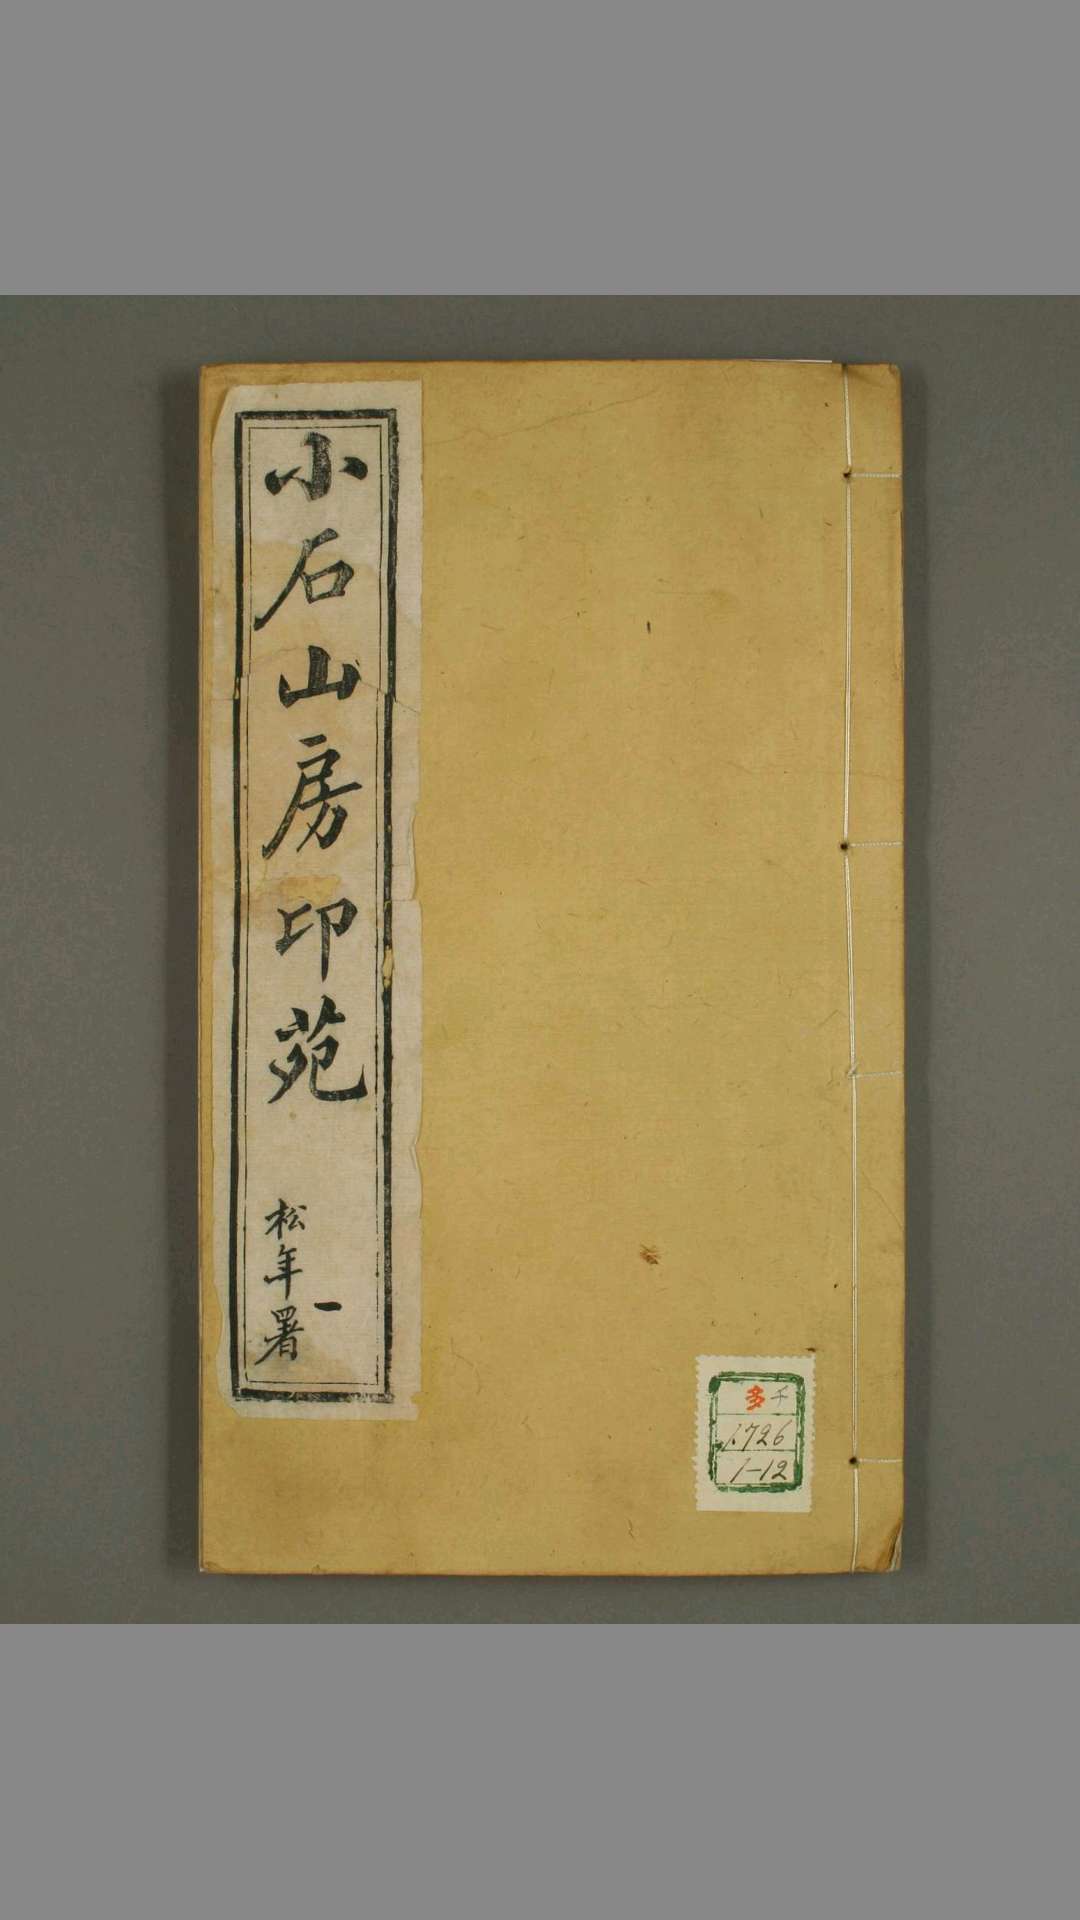 小石山房印苑
一
松年署
多 子
1.726
1-12